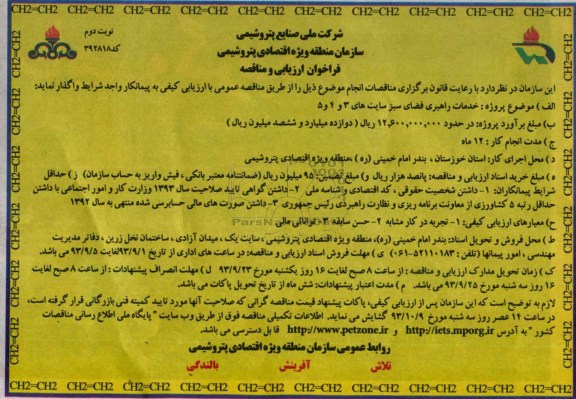 CH2=CH2 CH2=CH2 CH2=CH2 CH2=CH2 CH2=CH2 CH2=CH2 CH2=CH2 CH2=CH2
نوبت دوم
کد ۳۹۲۸۱۸
شرکت ملی صنایع پتروشیمی
سازمان منطقه ویژه اقتصادی پتروشیمی
فراخوان ارزیابی و مناقصه
این سازمان در نظر دارد با رعایت قانون برگزاری مناقصات انجام موضوع ذیل را از طریق مناقصه عمومی با ارزیابی کیفی به پیمانکار واجد شرایط واگذار نماید:
الف ) موضوع پروژه : خدمات راهبری فضای سبز سایت های ۳ و ۴ و۵
ب) مبلغ برآورد پروژه: در حدود ۱۲,۶۰۰,۰۰۰,۰۰۰ ریال ( دوازده میلیارد و ششصد میلیون ریال )
ج ) مدت انجام کار : ۱۲ ماه
د ) محل اجرای کار: استان خوزستان ، بندر امام خمینی (ره ) ،منطقه ویژه اقتصادی پتروشیمی
ه ) مبلغ خرید اسناد ارزیابی و مناقصه: پانصد هزار ریال و) مبلغ تضمین: ۹۵۰ میلیون ریال (ضمانتنامه معتبر بانکی ، فیش واریز به حساب سازمان) ز ) حداقل
شرایط پیمانکاران: ۱- داشتن شخصیت حقوقی ، کد اقتصادی و شناسه ملی ۲- داشتن گواهی تایید صلاحیت سال ۱۳۹۳ وزارت کار و امور اجتماعی با داشتن
حداقل رتبه ۵ کشاورزی از معاونت برنامه ریزی و نظارت راهبردی رئیس جمهوری ۳- داشتن صورت های مالی حسابرسی شده منتهی به سال ۱۳۹۲
ح) معیارهای ارزیابی کیفی: ۱- تجربه در کار مشابه ۲- حسن سابقه ۳- توانائی مالی
ط ) محل فروش و تحویل اسناد: بندر امام خمینی (ره)، منطقه ویژه اقتصادی پتروشیمی ، سایت یک ، میدان آزادی ، ساختمان نخل زرین ، دفاتر مدیریت
مهندسی ، امور پیمانها (تلفن : ۵۲۱۱۰۱۸۳-۰۶۱) ی ) مهلت فروش اسناد ارزیابی و مناقصه: در ساعت های اداری از تاریخ ۹۳/۹/۱ لغایت ۹۳/۹/۵ می باشد.
ک ) زمان تحویل مدارک ارزیابی و مناقصه : از ساعت ۸ صبح لغایت ۱۶ روز یکشنبه مورخ ۹۳/۹/۲۳ ل ) مهلت انصراف پیشنهادات : از ساعت ۸ صبح لغایت
۱۶ روز سه شنبه مورخ ۹۳/۹/۲۵ می باشد. م ) مدت اعتبار پیشنهادات: شش ماه از تاریخ تحویل پاکات می باشد.
لازم به توضیح است که این سازمان پس از ارزیابی کیفی، پاکات پیشنهاد قیمت مناقصه گرانی که صلاحیت آنها مورد تایید کمیته فنی بازرگانی قرار گرفته است،
در ساعت ۱۴ عصر روز سه شنبه مورخ ۹۳/۱۰/۹ گشایش می نماید. اطلاعات تکمیلی مناقصه فوق از طریق وب سایت " پایگاه ملی اطلاع رسانی مناقصات
کشور " به آدرس http://iets.mporg.ir و http://www.petzone.ir قابل دسترسی می باشد.
روابط عمومی سازمان منطقه ویژه اقتصادی پتروشیمی
تلاش آفرینش بالندگی
CH2=CH2 CH2=CH2 CH2=CH2 CH2=CH2 CH2=CH2 CH2=CH2 CH2=CH2 CH2=CH2